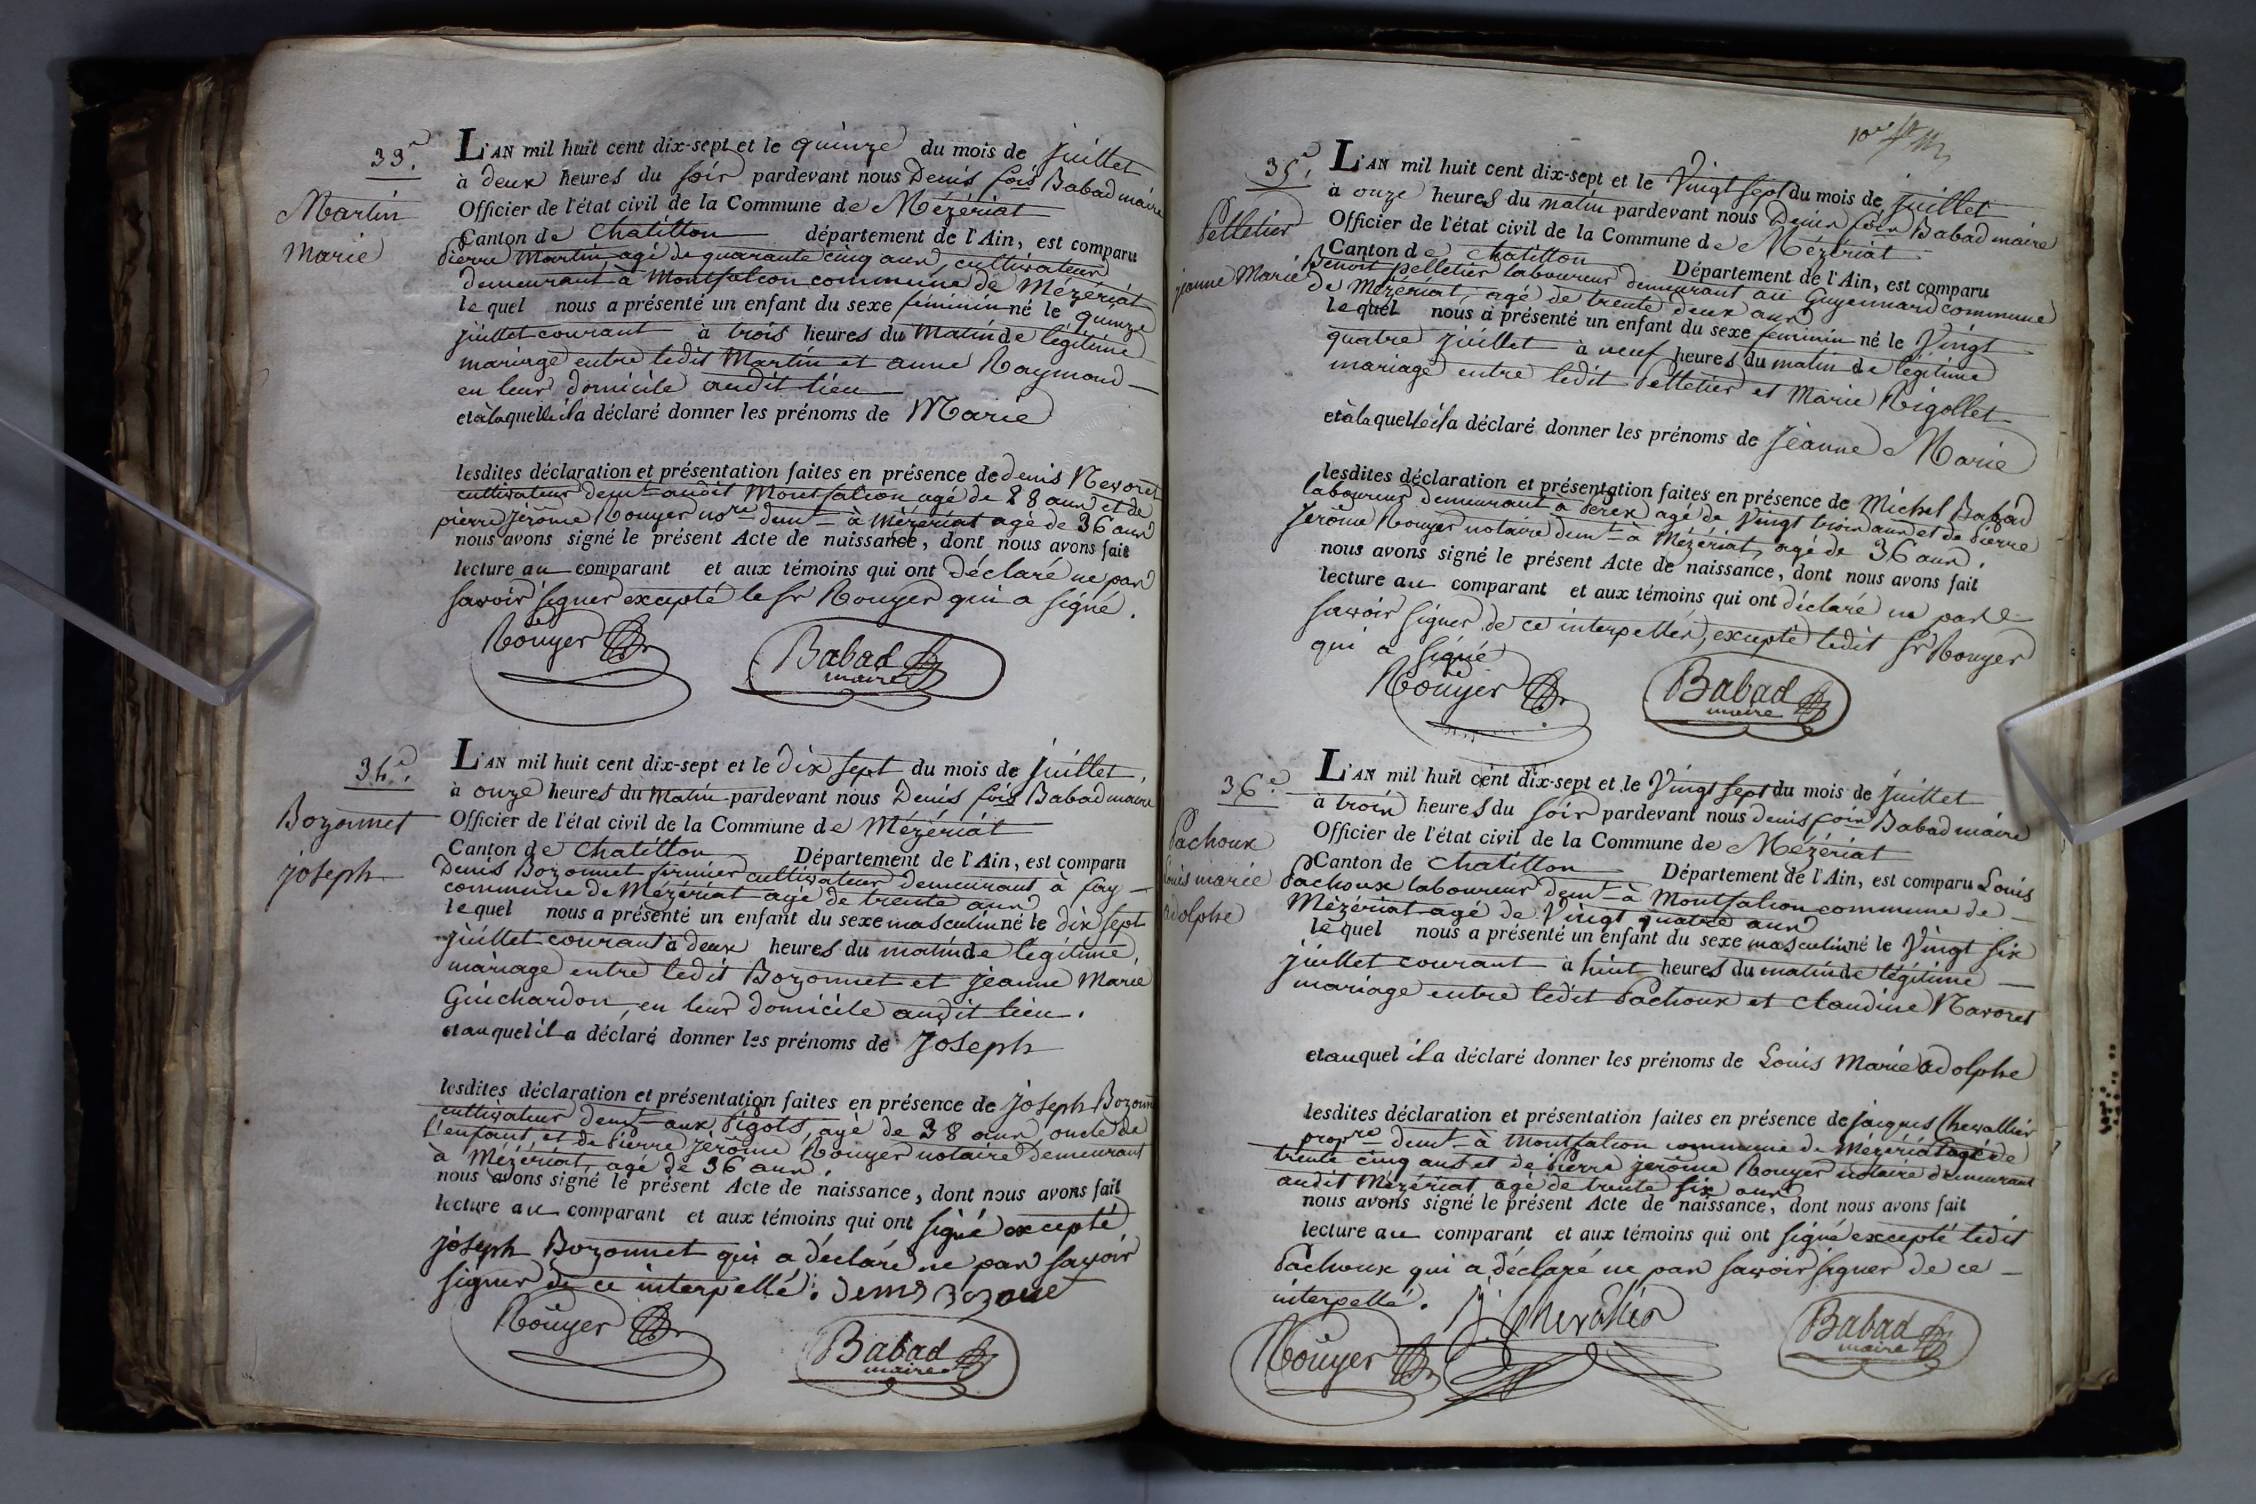 33.e
Martin
Marie
L'AN mil huit cent dix-sept et le quinze du mois de juillet
à deux heures du soir pardevant nous Denis fois Babad maire
Officier de l'état civil de la Commune de Mézériat
Canton de Chatillon département de l'Ain, est comparu
Pierre Martin agé de quarante cinq ans, cultivateur
demeurant à Montfalcon commune de Mézériat
lequel nous a présenté un enfant du sexe féminin né le quinze
juillet courant à trois heures du Matin de légitime
mariage entre ledit Martin et anne Raymond
en leur domicile audit lieu
et à laquelle il a déclaré donner les prénoms de Marie
lesdites déclaration et présentation faites en présence de denis Nevoret
cultivateur demt audit Montfalcon agé de 28 ans et de
pierre Jérôme Rouyer nore demt à Mézériat agé de 36 ans
nous avons signé le présent Acte de naissance, dont nous avons fait
lecture au comparant et aux témoins qui ont déclaré ne pas
savoir signer excepté le sr Rouyer qui a signé.
Rouyer Babad
maire
34.e
Bozonnet
joseph
L'AN mil huit cent dix-sept et le dix sept du mois de juillet,
à onze heures du Matin pardevant nous Denis fois Babad maire
Officier de l'état civil de la Commune de Mézériat
Canton de Chatillon Département de l'Ain, est comparu
Denis Bozonnet fermier cultivateur demeurant à fay
commune de Mézériat agé de trente ans
lequel nous a présenté un enfant du sexe masculin né le dix sept
juillet courant à deux heures du matin de légitime
mariage entre ledit Bozonnet et jeanne Marie
Guichardon, en leur domicile audit lieu.
et auquel il a déclaré donner les prénoms de Joseph
lesdites déclaration et présentation faites en présence de joseph Bozonnet
cultivateur demt aux Pigots, agé de 38 ans oncle de
l'enfant, et de Pierre Jérôme Rouyer notaire demeurant
à Mézériat, agé de 36 ans.
nous avons signé le présent Acte de naissance, dont nous avons fait
lecture au comparant et aux témoins qui ont signé excepté
joseph Bozonnet qui a déclaré ne pas savoir
signer de ce interpellé. denis bozonet
Rouyer Babad
maire
35.e
Pelletier
jeanne Marie
L'AN mil huit cent dix-sept et le Vingt sept du mois de juillet
à onze heures du matin pardevant nous Denis fois Babad maire
Officier de l'état civil de la Commune de Mézériat
Canton de chatillon Département de l'Ain, est comparu
Benoit pelletier laboureur demeurant au Guyennard commune
de Mézériat, agé de trente deux ans
lequel nous a présenté un enfant du sexe feminin né le Vingt
quatre juillet à neuf heures du matin de légitime
mariage entre ledit Pelletier et Marie Rigollet
et à laquelle il a déclaré donner les prénoms de Jeanne Marie
lesdites déclaration et présentation faites en présence de Michel Babad
laboureur demeurant à Perex agé de Vingt trois ans et de Pierre
Jerôme Rouyer notaire demt à Mézériat, agé de 36 ans.
nous avons signé le présent Acte de naissance, dont nous avons fait
lecture au comparant et aux témoins qui ont déclaré ne pas
savoir signer de ce interpellés, excepté ledit sr Rouyer
qui a signé
Rouyer Babad
maire
36.e
Pachoux
Louis marie
adolphe
L'AN mil huit cent dix-sept et le Vingt sept du mois de juillet
à trois heures du soir pardevant nous denis fois Babad maire
Officier de l'état civil de la Commune de Mézériat
Canton de chatillon Département de l'Ain, est comparu Louis
Pachoux laboureur demt à Montfalcon commune de
Mézériat agé de Vingt quatre ans
lequel nous a présenté un enfant du sexe masculin né le Vingt six
juillet courant à huit heures du matin de légitime
mariage entre ledit Pachoux et claudine Navoret
et auquel il a déclaré donner les prénoms de Louis Marie adolphe
lesdites déclaration et présentation faites en présence de jacques Chevallier
propre demt à Montfalcon commune de Mézériat agé de
trente cinq ans et de Pierre jerôme Rouyer notaire demeurant
audit Mézériat agé de trente six ans
nous avons signé le présent Acte de naissance, dont nous avons fait
lecture au comparant et aux témoins qui ont signé excepté ledit
Pachoux qui a déclaré ne pas savoir signer de ce
interpellé.
Rouyer J. Chevallier Babad
maire